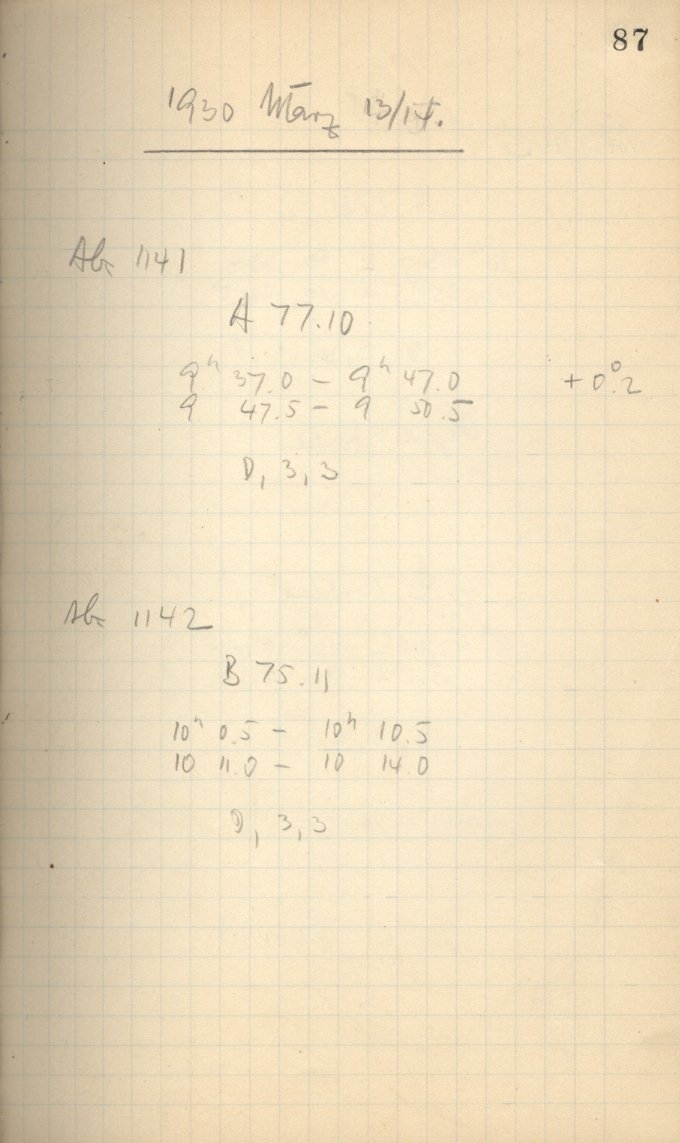 87
1930 März 13/14.
Abr 1141
A 77.10
9ʰ 37.0 – 9ʰ 47.0 +0°.2
9 47.5 – 9 50.5
D, 3, 3
Abr 1142
B 75.11
10ʰ 0.5 – 10ʰ 10.5
10 11.0 – 10 14.0
D, 3, 3